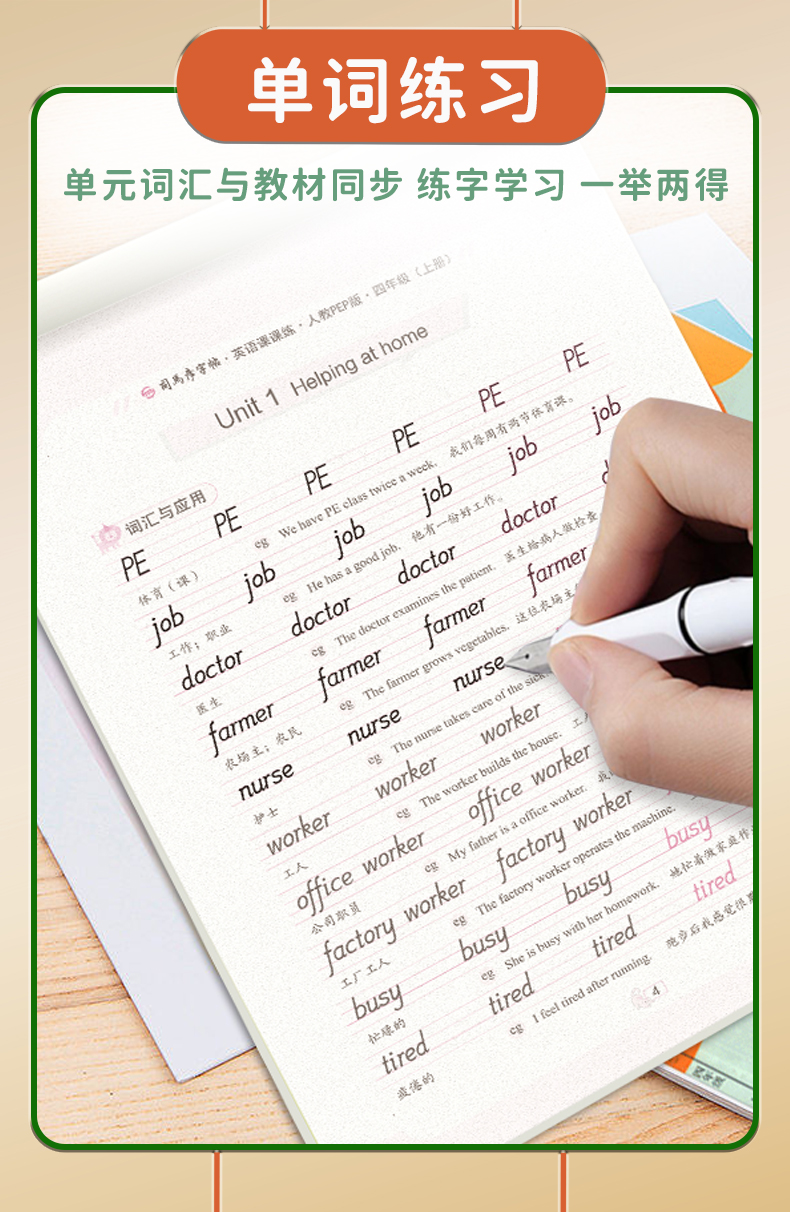 单词练习
单元词汇与教材同步 练字学习 一举两得
司马彦字帖·英语课课练·人教PEP版·四年级（上册）
Unit 1 Helping at home
词汇与应用
PE PE PE PE PE PE
体育（课） eg We have PE class twice a week. 我们每周有两节体育课。
job job job job job job
工作；职业 eg He has a good job. 他有一份好工作。
doctor doctor doctor doctor
医生 eg The doctor examines the patient. 医生给病人做检查
farmer farmer farmer farmer
农场主；农民 eg The farmer grows vegetables. 这位农场主
nurse nurse nurse
护士 eg The nurse takes care of the sick
worker worker worker
工人 eg The worker builds the house.
office worker office worker
公司职员 eg My father is a office worker.
factory worker factory worker
工厂工人 eg The factory worker operates the machine.
busy busy busy busy
忙碌的 eg She is busy with her homework. 她忙着做家庭作
tired tired tired tired
疲倦的 eg I feel tired after running. 跑步后我感觉很
4
四年级